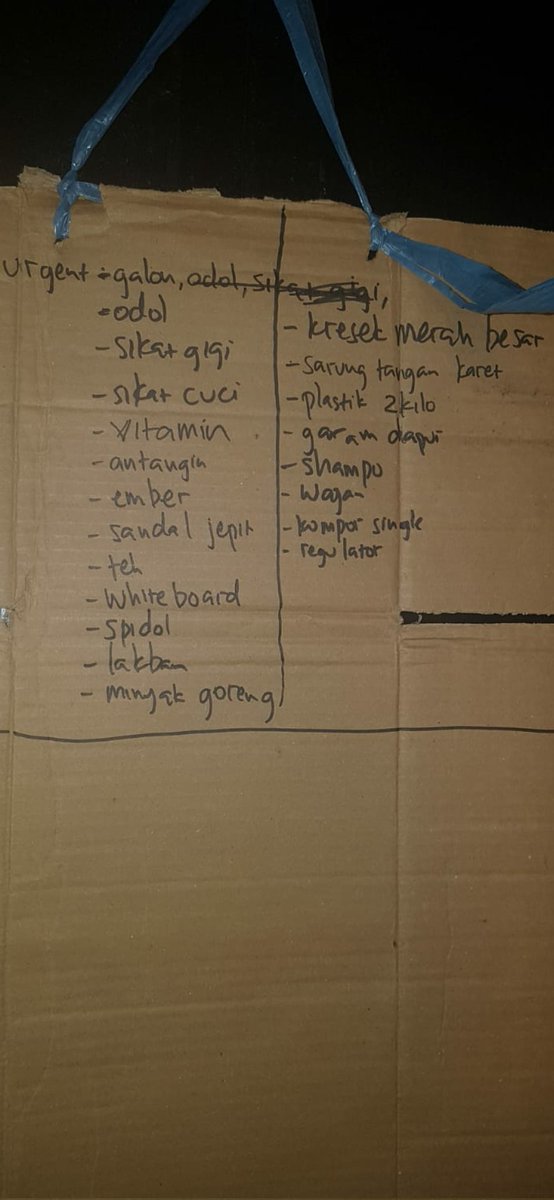 urgent = galon, odol, sikat gigi,
= odol
- sikat gigi
- sikat cuci
- Vitamin
- antangin
- ember
- sandal jepit
- teh
- whiteboard
- spidol
- lakban
- minyak goreng
- kresek merah besar
- sarung tangan karet
- plastik 2kilo
- garam dapur
- shampo
- wajan
- kompor single
- regulator